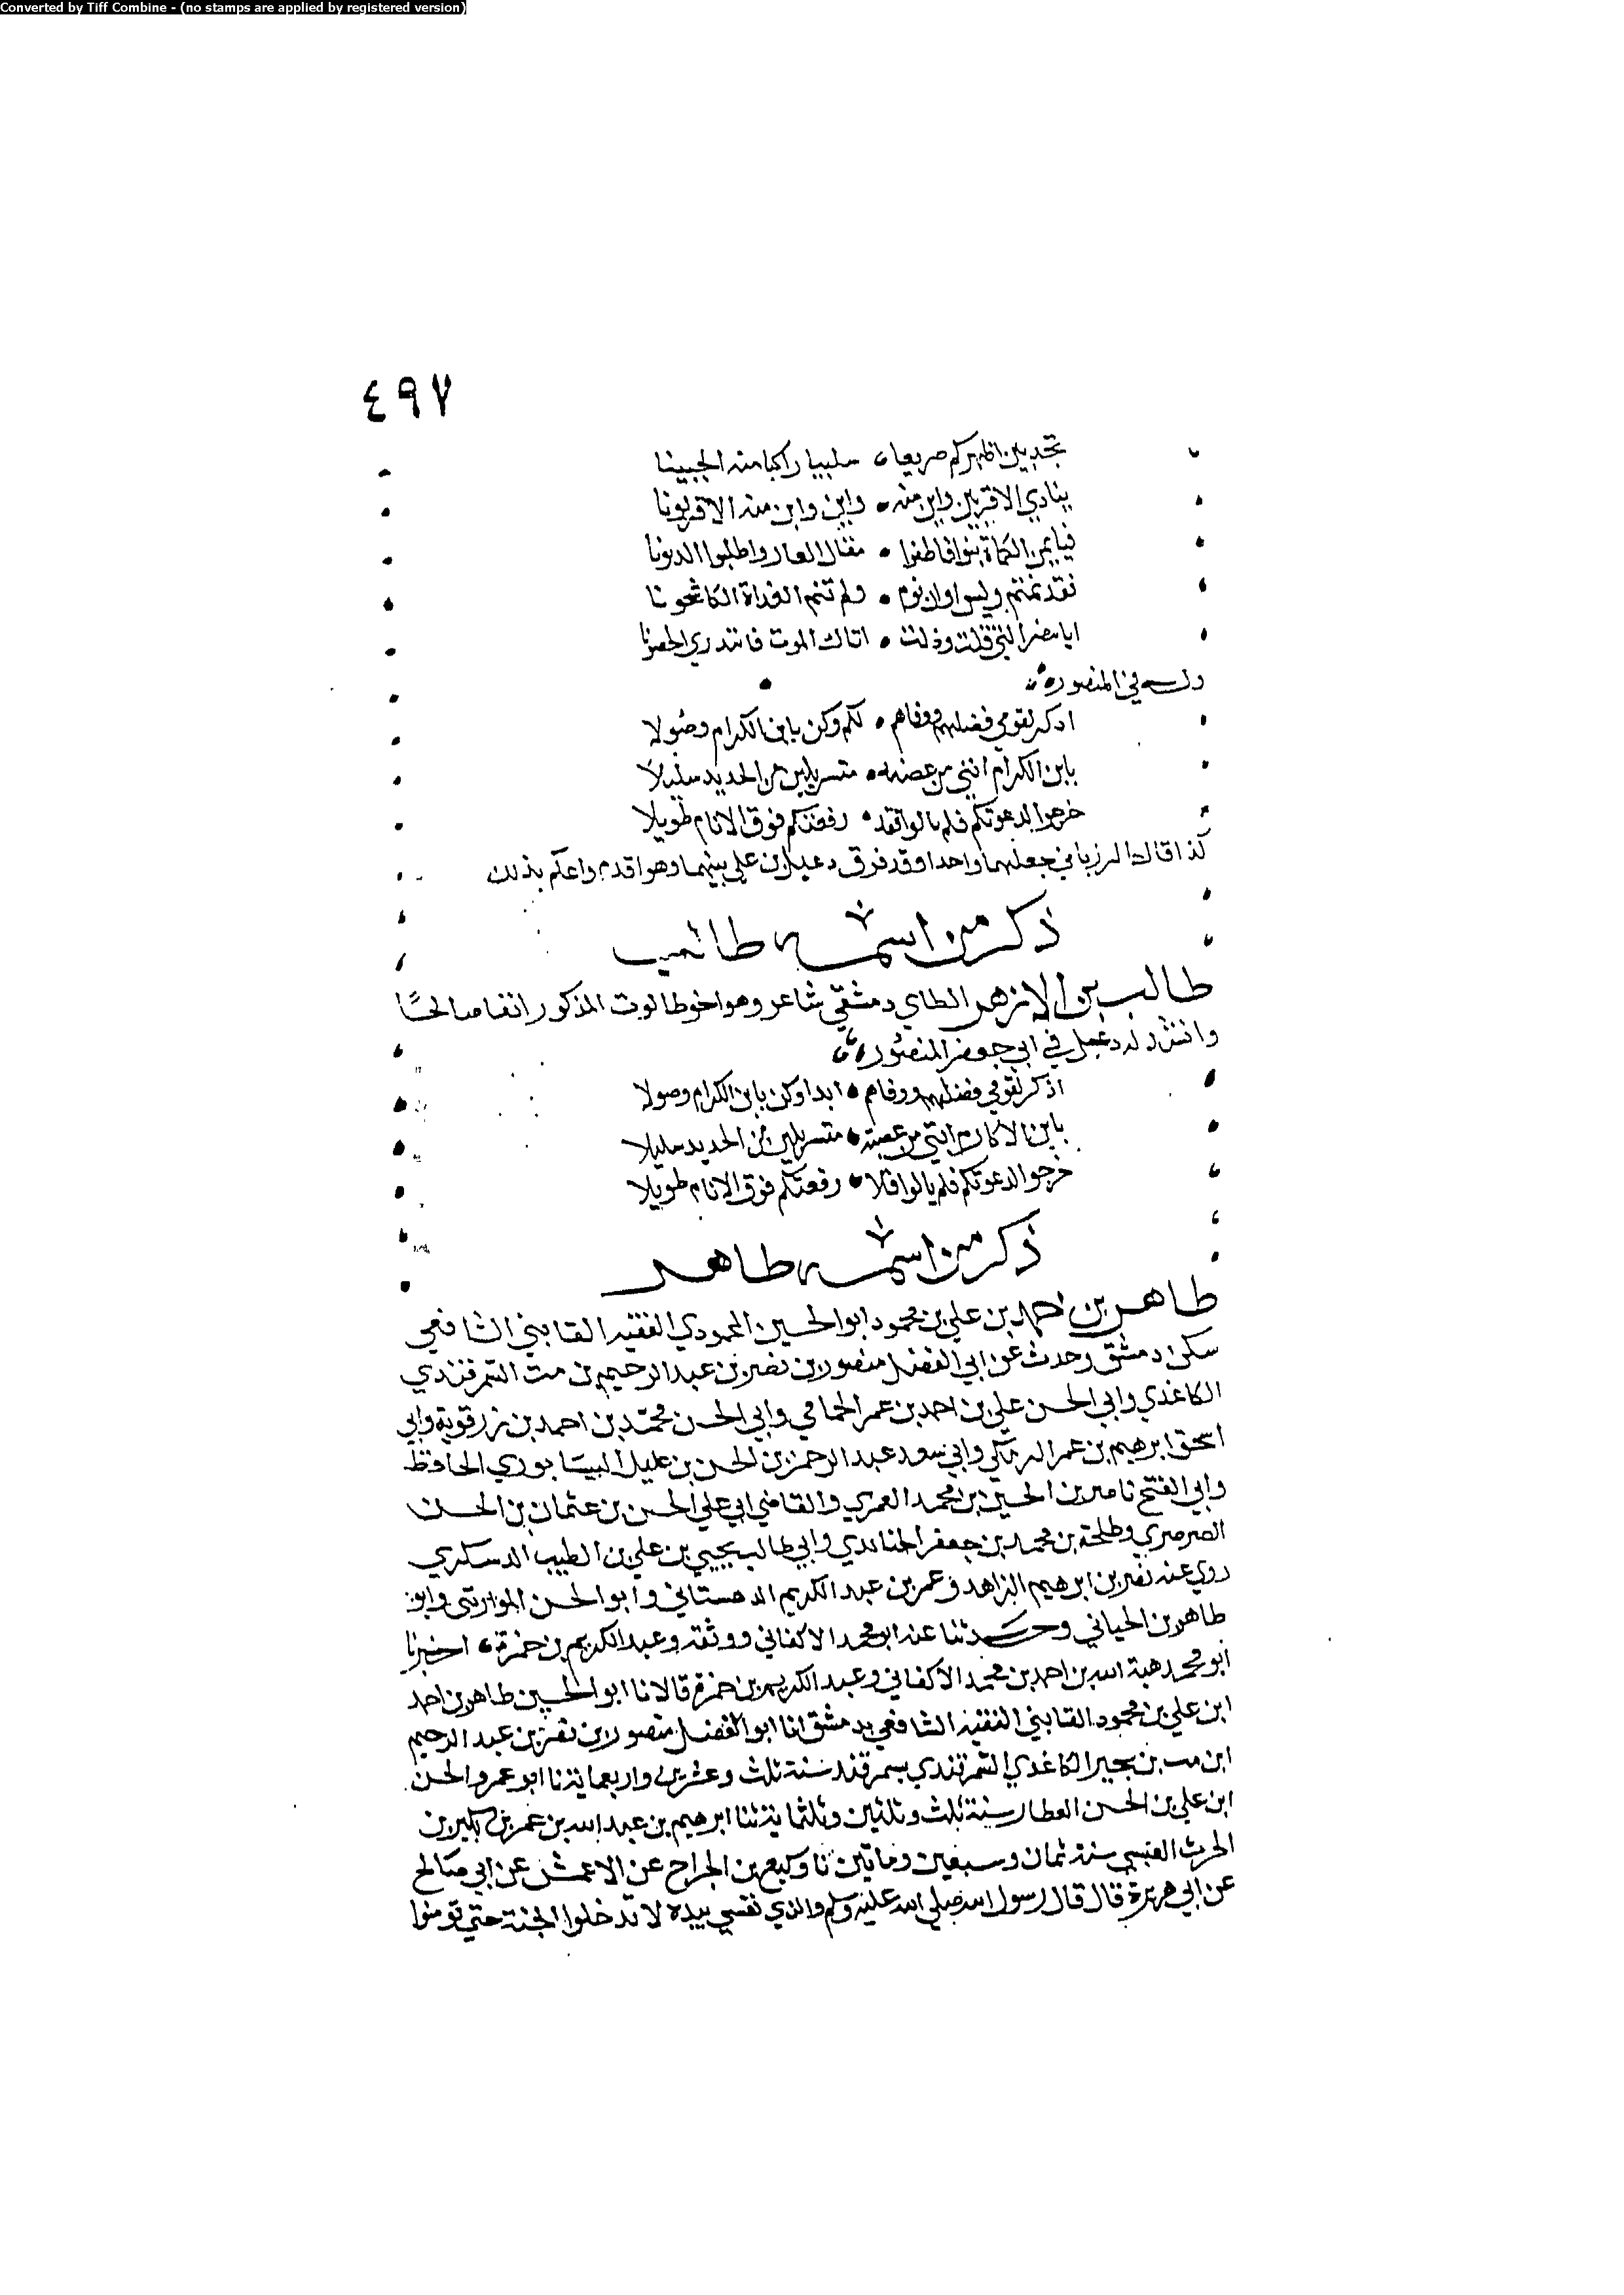 Converted by Tiff Combine - (no stamps are applied by registered version)
٤٩٧
تجد بين اظهركم صريعا سليبا راكبا منه الجبينا
ينادي الاقربين واين منه • واين واين منه الاقربونا
فيا يمن الكماة بنوا • مقال العار واطلبوا الديونا
فقد نمتم وليس اوان نوم • ولم تنم الغداة الكاشحونا
ايا مضر التي قلت وذلت • اتاك الموت فابتدري الحصونا
وله في المنصور
اذكر لقومي فضلهم ووفاهم • لكم وكن يا بن الكرام وصولا
يا بن الكرام انني من عصبة • متسربلين من الحديد سليلا
خرجوا لدعوتكم فلم يالوا فقد • رفعتكم فوق الانام طويلا
كذا قال المرزباني جعلهما واحدا وقد فرق دعبل بن علي بينهما وهو اقدم واعلم بذلك
ذكر من اسمه طالب
طالب بن الازهر الطاي دمشقي شاعر وهو اخو طالوت المذكور انفا
وانشد له دعبل في ابي جعفر المنصور
اذكر لقومي فضلهم ووفاهم • ابدا وكن يا بن الكرام وصولا
يا بن الاكارم انني من عصبة • متسربلين من الحديد سليلا
خرجوا لدعوتكم فلم يالوا فلا • رفعتكم فوق الانام طويلا
ذكر من اسمه طاهر
طاهر بن احمد بن علي بن محمود ابو الحسين المحمودي الفقيه القايني الشافعي
سكن دمشق وحدث عن ابي الفضل منصور بن نصر بن عبد الرحيم بن مت السمرقندي
الكاغدي وابي الحسن علي بن احمد بن عمر الحمامي وابي الحسن محمد بن احمد بن زرقوية وابي
اسحق ابرهيم بن عمر البرمكي وابي سعد عبد الرحمن بن الحسن بن عليك النيسابوري الحافظ
وابي الفتح ناصر بن الحسين بن محمد العمري والقاضي ابي علي الحسن بن عثمان بن الحسن
الصرصري وطلحة بن محمد بن جعفر وابي طالب يحيي بن علي بن الطيب الدسكري
روي عنه نصر بن ابرهيم الزاهد وعمر بن عبد الكريم الدهستاني وابو الحسن الموازيني وابو
طاهر بن الحياني وحدثنا عنه ابو محمد الاكفاني ووثقه وعبد الكريم بن حمزة • اخبرنا
ابو محمد هبة الله بن احمد بن محمد الاكفاني وعبد الكريم بن حمزة قالا نا ابو الحسين طاهر بن احمد
ابن علي بن محمود القايني الفقيه الشافعي بدمشق انا ابو الفضل منصور بن نصر بن عبد الرحيم
ابن مت بن بجير الكاغدي السمرقندي بسمرقند سنة ثلث وعشرين واربعماية نا ابو عمرو الحسن
ابن علي بن الحسن العطار سنة ثلث وثلثين وثلثماية نا ابرهيم بن عبد الله بن عمر بن بكير بن
الحرث العبسي سنة ثمان وسبعين وماتين نا وكيع بن الجراح عن الاعمش عن ابي صالح
عن ابي هريرة قال قال رسول الله صلي الله عليه وسلم والذي نفسي بيده لا تدخلوا الجنة حتي تومنوا